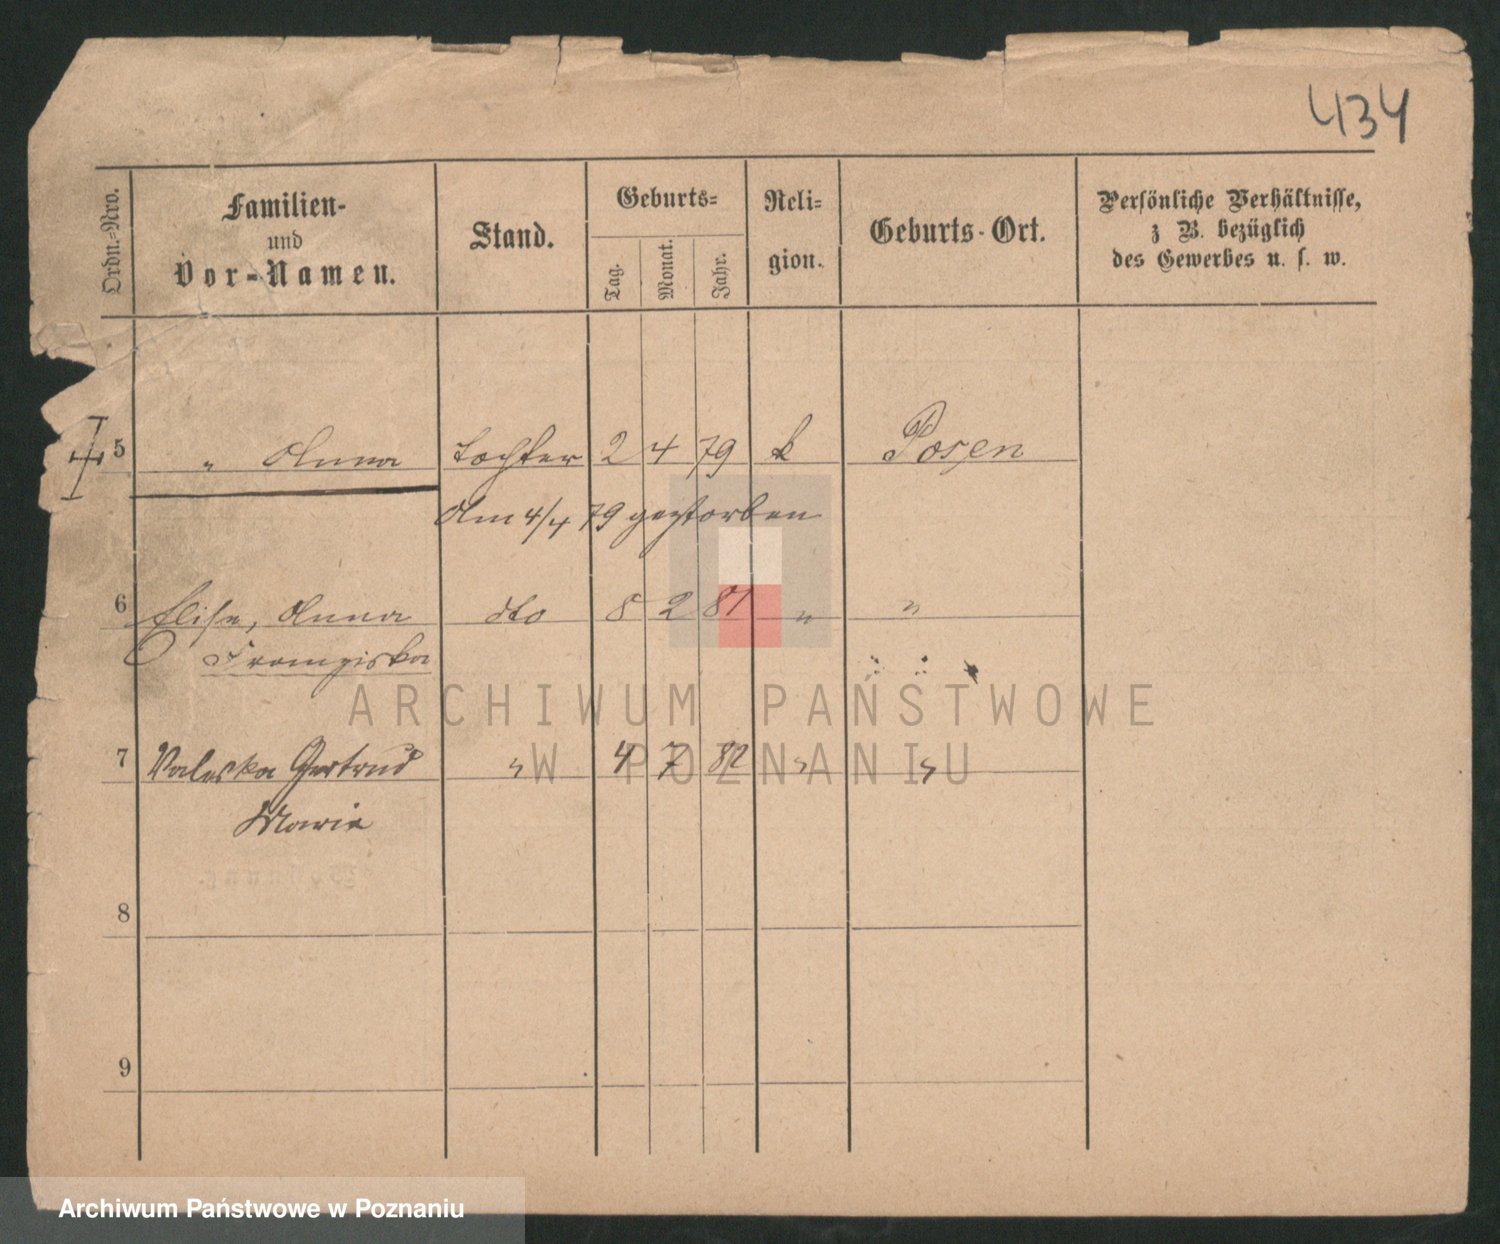 434
Ordn.-Nro.
Familien-
und
Vor-Namen.
Stand.
Geburts-
Tag.
Monat.
Jahr.
Reli-
gion.
Geburts-Ort.
Persönliche Verhältnisse,
z B. bezüglich
des Gewerbes u. s. w.
5 " Anna Tochter 2 4 79 k Posen
Am 4/4 79 gestorben
6 Elise, Anna dto 8 2 81 " "
Franziska
7 Valeska Gertrud " 4 7 82 " "
Marie
8
9
ARCHIWUM PAŃSTWOWE
W POZNANIU
Archiwum Państwowe w Poznaniu